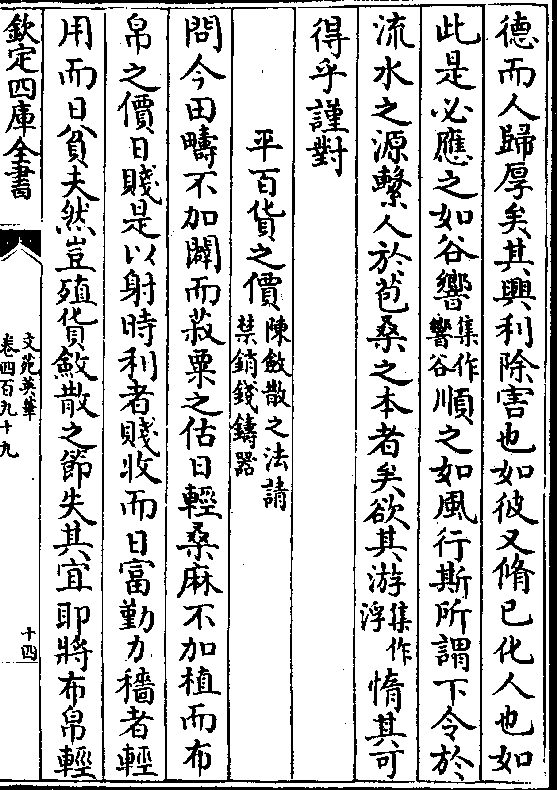 德而人歸厚矣其興利除害也如彼又脩已化人也如
此是必應之如谷響集作響谷順之如風行斯所謂下令於
流水之源繫人於苞桑之本者矣欲其游集作浮惰其可
得乎謹對
平百貨之價陳斂散之法請禁銷錢鑄器
問今田疇不加闢而菽粟之估日輕桑麻不加植而布
帛之價日賤是以射時利者賤收而日富勤力穡者輕
用而日貧夫然豈殖貨斂散之節失其宜耶將布帛輕
欽定四庫全書
文苑英華
卷四百九十九
十四